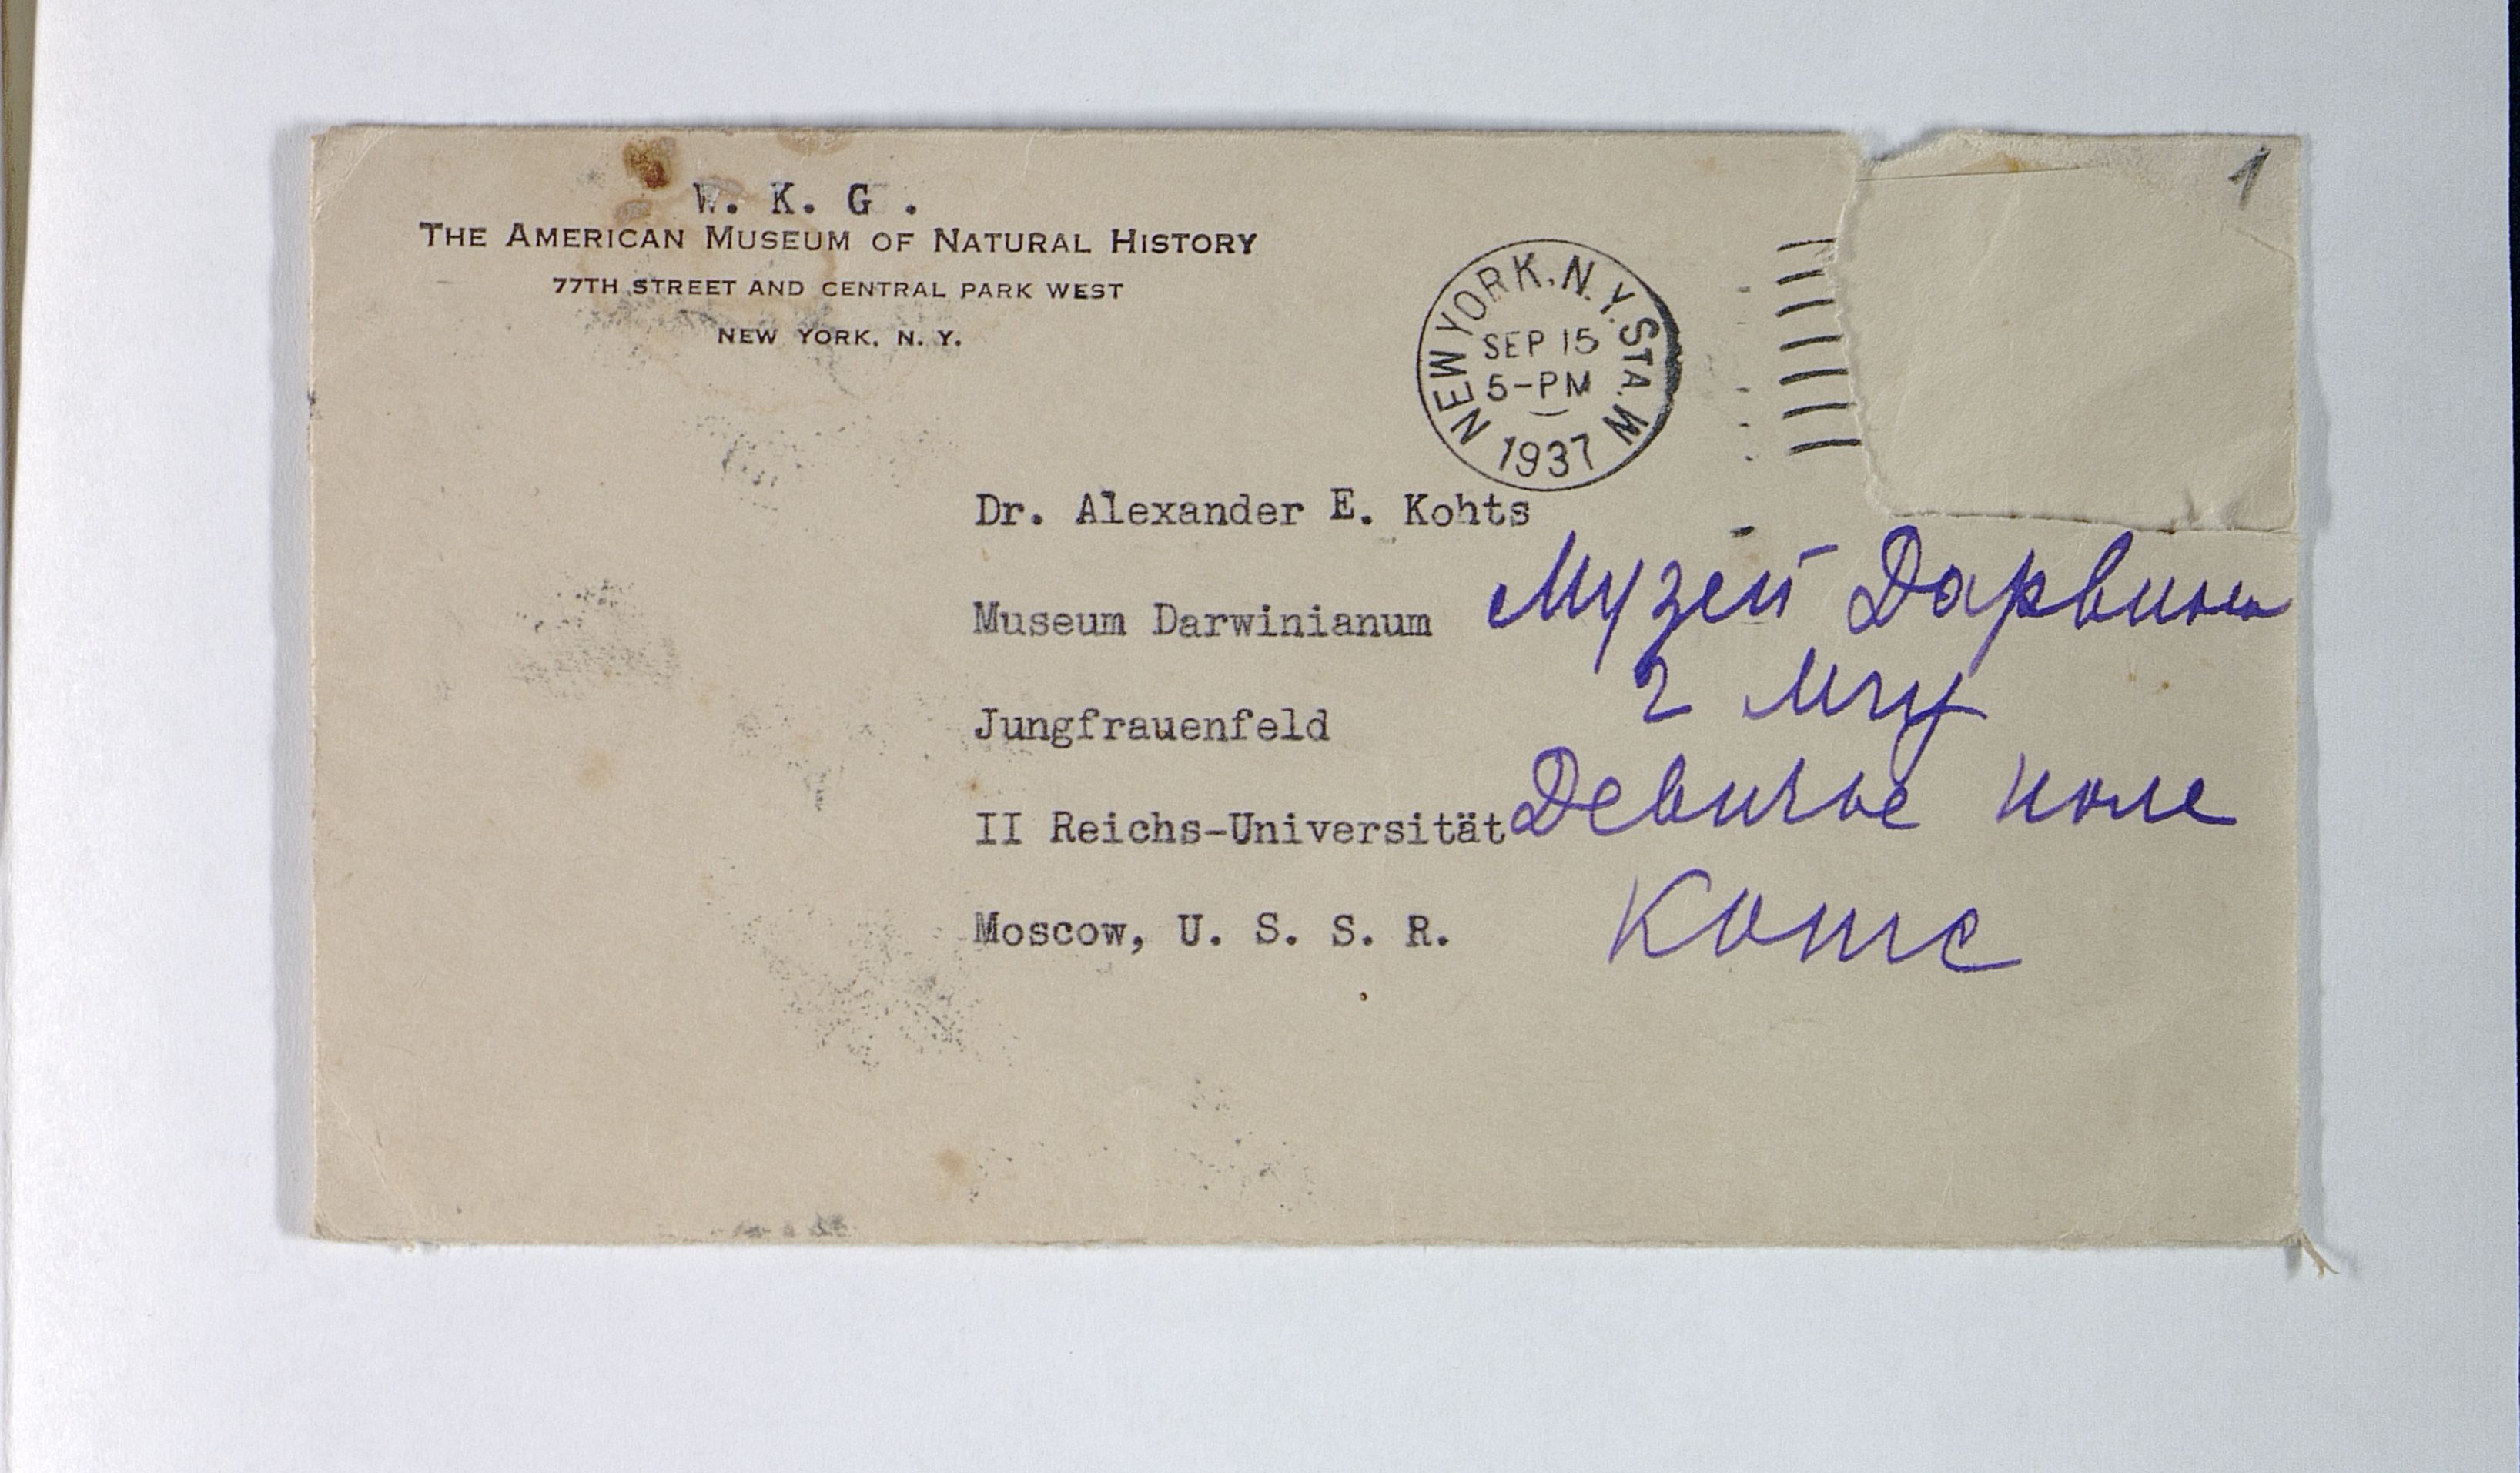 1
W. K. G.
THE AMERICAN MUSEUM OF NATURAL HISTORY
77TH STREET AND CENTRAL PARK WEST
NEW YORK, N. Y.
NEW YORK, N. Y. STA. W
SEP 15
5-PM
1937
Dr. Alexander E. Kohts
Museum Darwinianum
Музей Дарвина
2 МГУ
Jungfrauenfeld
Девичье поле
II Reichs-Universität
Котс
Moscow, U. S. S. R.